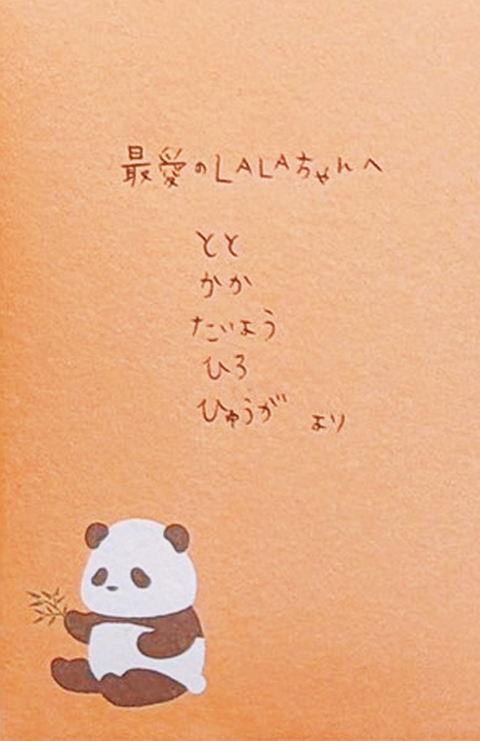 最愛のLALAちゃんへ
とと
かか
たいよう
ひろ
ひゅうが より